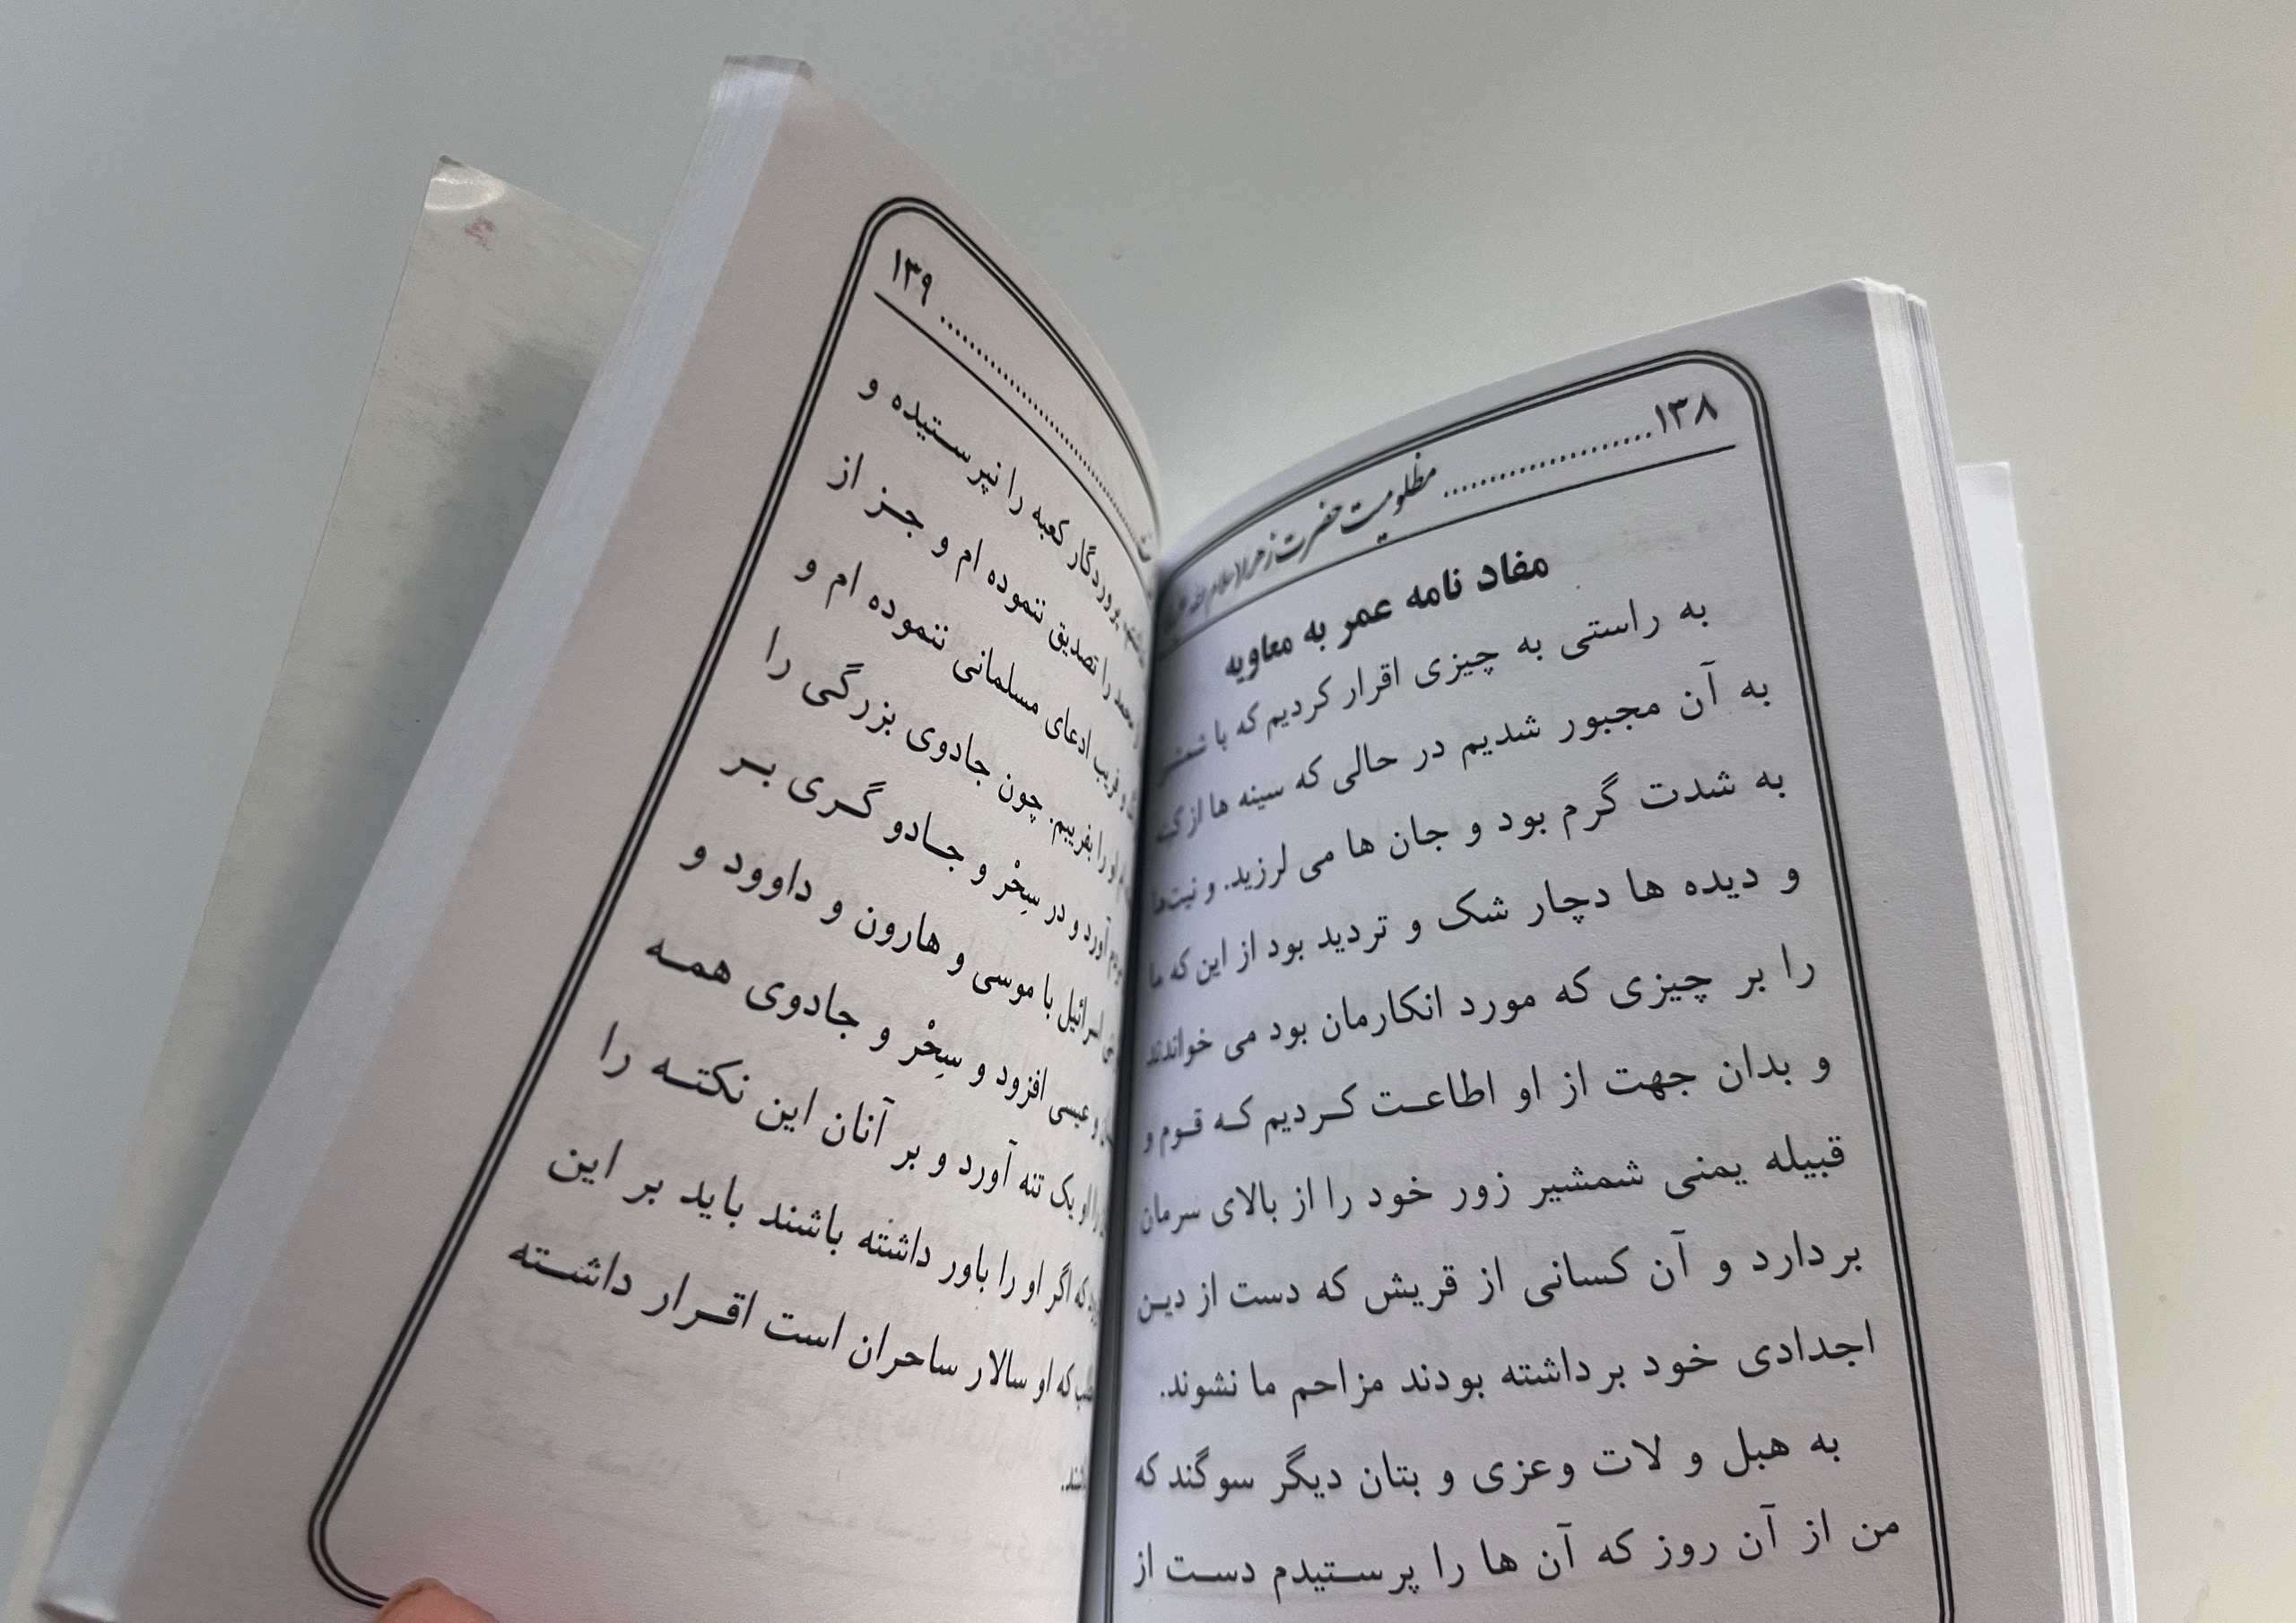 ۱۳۸ .......................... مظلومیت حضرت زهرا سلام الله
مفاد نامه عمر به معاویه
به راستی به چیزی اقرار کردیم که با
به آن مجبور شدیم در حالی که سینه ها از کینه
به شدت گرم بود و جان ها می لرزید. و نیت‌ها
و دیده ها دچار شک و تردید بود از این که ما
را بر چیزی که مورد انکارمان بود می خواندند
و بدان جهت از او اطاعت کردیم که قوم و
قبیله یمنی شمشیر زور خود را از بالای سرمان
بردارد و آن کسانی از قریش که دست از دین
اجدادی خود برداشته بودند مزاحم ما نشوند.
به هبل و لات وعزی و بتان دیگر سوگند که
من از آن روز که آن ها را پرستیدم دست از
۱۳۹
پروردگار کعبه را نپرستیده و
محمد را تصدیق ننموده ام و جز از
و فریب ادعای مسلمانی ننموده ام و
او را بفریبم. چون جادوی بزرگی را
آورد و در سِحْر و جادو گری بر
اسرائیل با موسی و هارون و داوود و
و عیسی افزود و سِحْر و جادوی همه
را او یک تنه آورد و بر آنان این نکته را
که اگر او را باور داشته باشند باید بر این
که او سالار ساحران است اقرار داشته